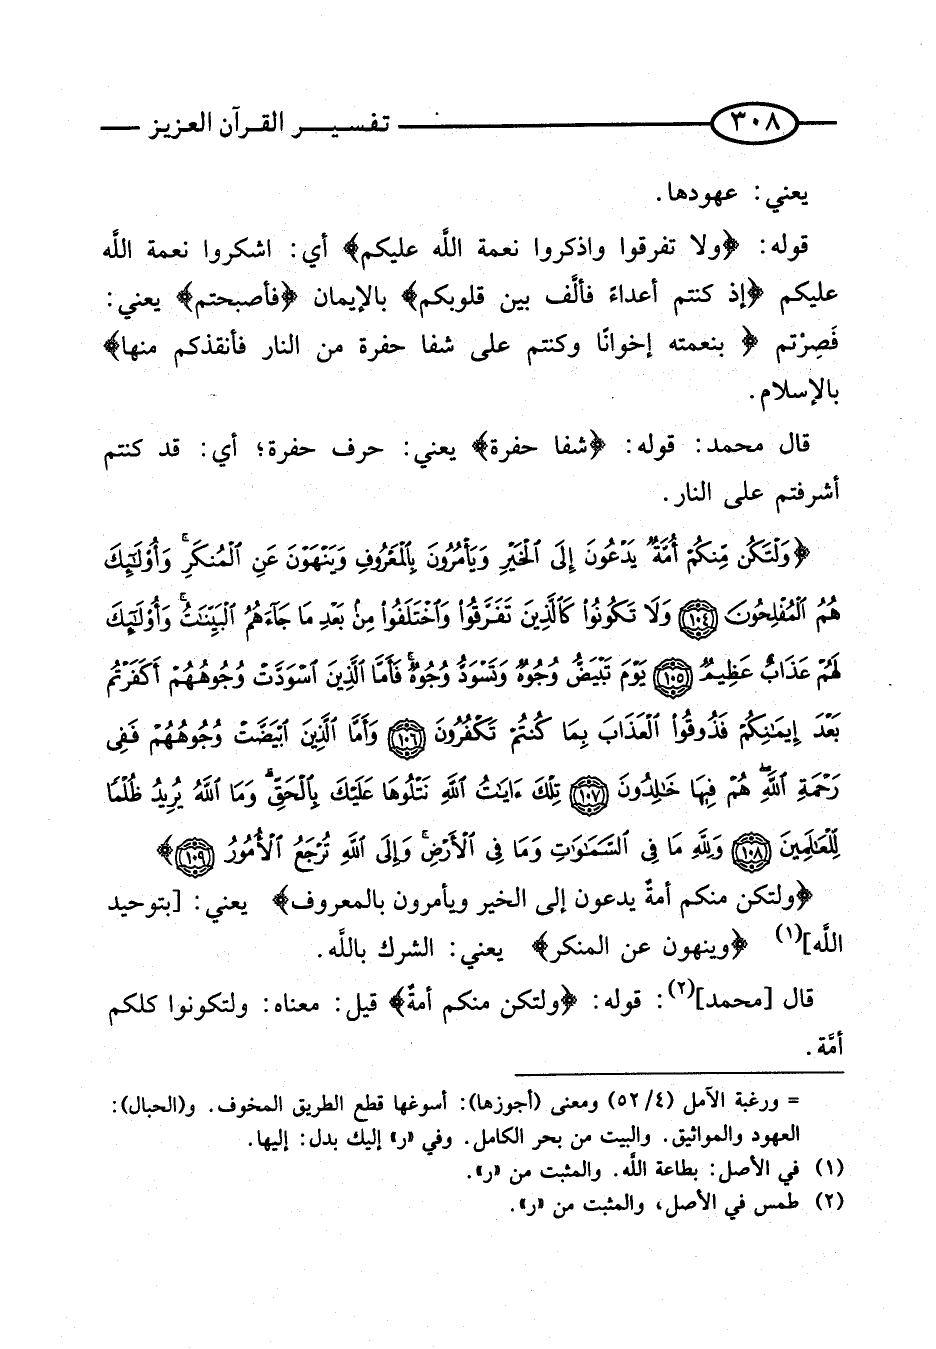 ٣٠٨ تفسير القرآن العزيز
يعني: عهودها.
قوله: ﴿ولا تفرقوا واذكروا نعمة اللَّه عليكم﴾ أي: اشكروا نعمة اللَّه
عليكم ﴿إذ كنتم أعداءً فألَّف بين قلوبكم﴾ بالإيمان ﴿فأصبحتم﴾ يعني:
فَصِرْتم ﴿ بنعمته إخوانًا وكنتم على شفا حفرة من النار فأنقذكم منها﴾
بالإسلام.
قال محمد: قوله: ﴿شفا حفرة﴾ يعني: حرف حفرة؛ أي: قد كنتم
أشرفتم على النار.
﴿وَلْتَكُن مِّنكُمْ أُمَّةٌ يَدْعُونَ إِلَى ٱلْخَيْرِ وَيَأْمُرُونَ بِٱلْمَعْرُوفِ وَيَنْهَوْنَ عَنِ ٱلْمُنكَرِ ۚ وَأُو۟لَـٰٓئِكَ
هُمُ ٱلْمُفْلِحُونَ ١٠٤ وَلَا تَكُونُوا۟ كَٱلَّذِينَ تَفَرَّقُوا۟ وَٱخْتَلَفُوا۟ مِنۢ بَعْدِ مَا جَآءَهُمُ ٱلْبَيِّنَـٰتُ ۚ وَأُو۟لَـٰٓئِكَ
لَهُمْ عَذَابٌ عَظِيمٌ ١٠٥ يَوْمَ تَبْيَضُّ وُجُوهٌ وَتَسْوَدُّ وُجُوهٌ ۚ فَأَمَّا ٱلَّذِينَ ٱسْوَدَّتْ وُجُوهُهُمْ أَكَفَرْتُم
بَعْدَ إِيمَـٰنِكُمْ فَذُوقُوا۟ ٱلْعَذَابَ بِمَا كُنتُمْ تَكْفُرُونَ ١٠٦ وَأَمَّا ٱلَّذِينَ ٱبْيَضَّتْ وُجُوهُهُمْ فَفِى
رَحْمَةِ ٱللَّهِ ۖ هُمْ فِيهَا خَـٰلِدُونَ ١٠٧ تِلْكَ ءَايَـٰتُ ٱللَّهِ نَتْلُوهَا عَلَيْكَ بِٱلْحَقِّ ۗ وَمَا ٱللَّهُ يُرِيدُ ظُلْمًا
لِّلْعَـٰلَمِينَ ١٠٨ وَلِلَّهِ مَا فِى ٱلسَّمَـٰوَٰتِ وَمَا فِى ٱلْأَرْضِ ۚ وَإِلَى ٱللَّهِ تُرْجَعُ ٱلْأُمُورُ ١٠٩﴾
﴿ولتكن منكم أمةٌ يدعون إلى الخير ويأمرون بالمعروف﴾ يعني: [بتوحيد
اللَّه](١) ﴿وينهون عن المنكر﴾ يعني: الشرك باللَّه.
قال [محمد](٢): قوله: ﴿ولتكن منكم أمةٌ﴾ قيل: معناه: ولتكونوا كلكم
أمَّة.
= ورغبة الآمل (٥٢/٤) ومعنى (أجوزها): أسوغها قطع الطريق المخوف. و(الحبال):
العهود والمواثيق. والبيت من بحر الكامل. وفي «ر» إليك بدل: إليها.
(١) في الأصل: بطاعة اللَّه. والمثبت من «ر».
(٢) طمس في الأصل، والمثبت من «ر».